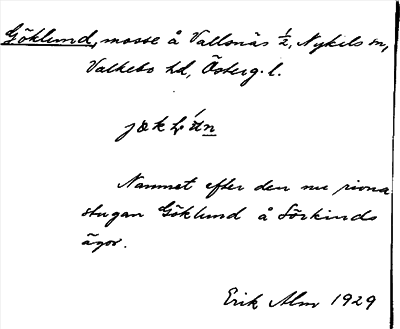 Göklund, mosse å Vallsnäs ½, Nykils sn,
Valkebo hd, Österg. l.
Namnet efter den nu rivna
stugan Göklund å Sörkinds
ägor.
Erik Alm 1929